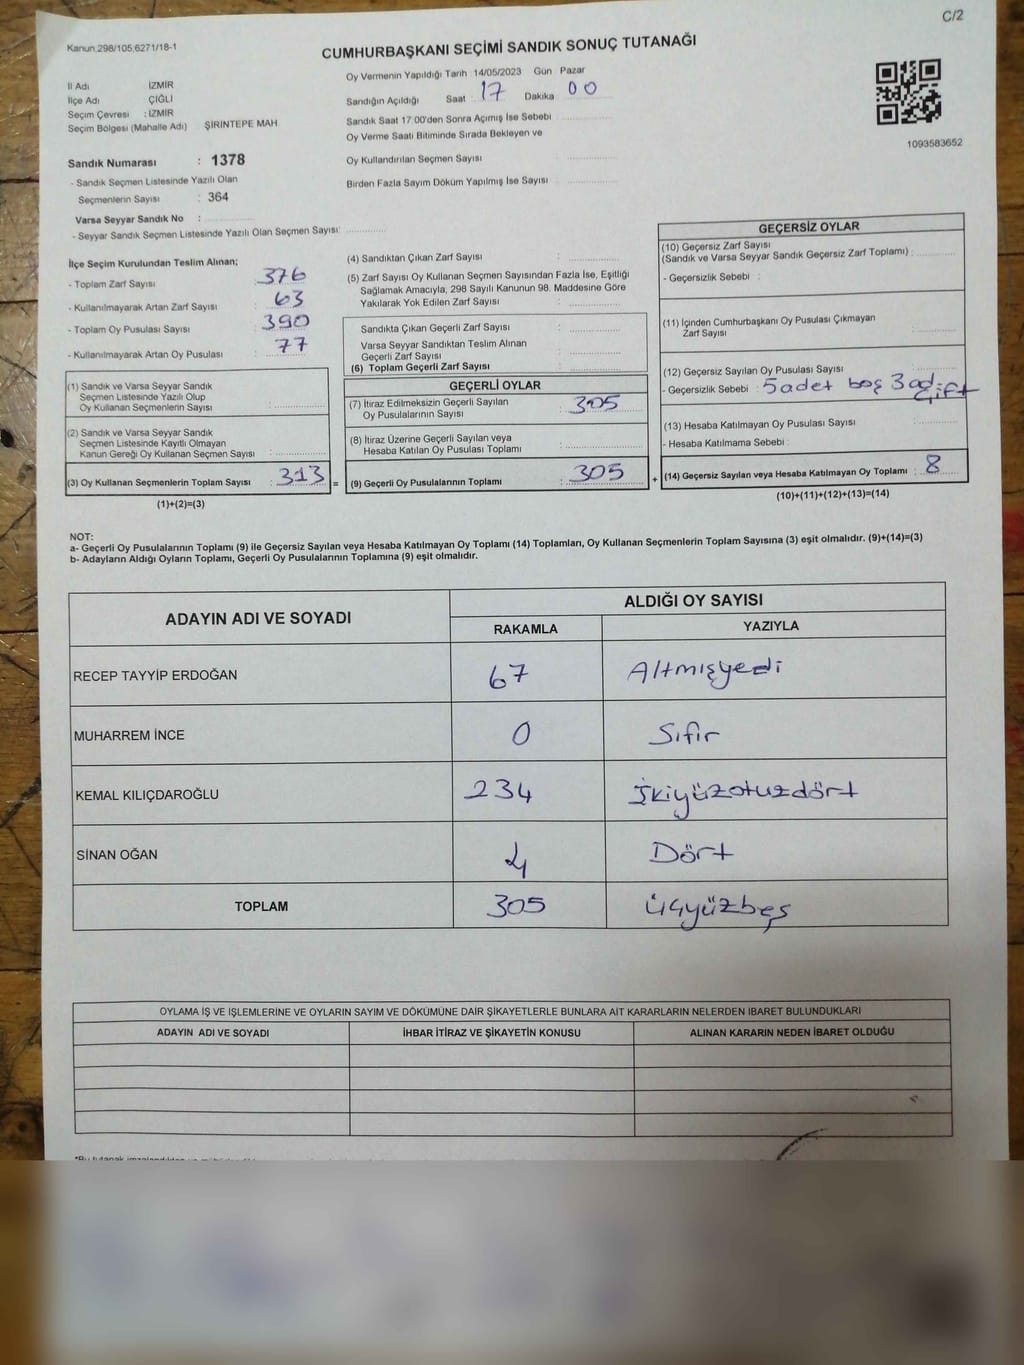 C/2
Kanun,298/105,6271/18-1
CUMHURBAŞKANI SEÇİMİ SANDIK SONUÇ TUTANAĞI
İl Adı İZMİR
İlçe Adı ÇİĞLİ
Seçim Çevresi : İZMİR
Seçim Bölgesi (Mahalle Adı) ŞİRİNTEPE MAH.
Sandık Numarası : 1378
- Sandık Seçmen Listesinde Yazılı Olan
Seçmenlerin Sayısı : 364
Varsa Seyyar Sandık No :
- Seyyar Sandık Seçmen Listesinde Yazılı Olan Seçmen Sayısı:
Oy Vermenin Yapıldığı Tarih 14/05/2023 Gün Pazar
Sandığın Açıldığı Saat 17 Dakika 00
Sandık Saat 17.00'den Sonra Açımış İse Sebebi
Oy Verme Saati Bitiminde Sırada Bekleyen ve
Oy Kullandırılan Seçmen Sayısı
Birden Fazla Sayım Döküm Yapılmış İse Sayısı
1093583652
İlçe Seçim Kurulundan Teslim Alınan;
- Toplam Zarf Sayısı : 376
- Kullanılmayarak Artan Zarf Sayısı : 63
- Toplam Oy Pusulası Sayısı : 390
- Kullanılmayarak Artan Oy Pusulası : 77
(1) Sandık ve Varsa Seyyar Sandık
Seçmen Listesinde Yazılı Olup
Oy Kullanan Seçmenlerin Sayısı :
(2) Sandık ve Varsa Seyyar Sandık
Seçmen Listesinde Kayıtlı Olmayan
Kanun Gereği Oy Kullanan Seçmen Sayısı :
(3) Oy Kullanan Seçmenlerin Toplam Sayısı : 313 =
(1)+(2)=(3)
(4) Sandıktan Çıkan Zarf Sayısı :
(5) Zarf Sayısı Oy Kullanan Seçmen Sayısından Fazla İse, Eşitliği
Sağlamak Amacıyla, 298 Sayılı Kanunun 98. Maddesine Göre
Yakılarak Yok Edilen Zarf Sayısı :
Sandıkta Çıkan Geçerli Zarf Sayısı :
Varsa Seyyar Sandıktan Teslim Alınan
Geçerli Zarf Sayısı :
(6) Toplam Geçerli Zarf Sayısı :
GEÇERLİ OYLAR
(7) İtiraz Edilmeksizin Geçerli Sayılan
Oy Pusulalarının Sayısı : 305
(8) İtiraz Üzerine Geçerli Sayılan veya
Hesaba Katılan Oy Pusulası Toplamı :
(9) Geçerli Oy Pusulalarının Toplamı : 305 +
GEÇERSİZ OYLAR
(10) Geçersiz Zarf Sayısı
(Sandık ve Varsa Seyyar Sandık Geçersiz Zarf Toplamı) :
- Geçersizlik Sebebi :
(11) İçinden Cumhurbaşkanı Oy Pusulası Çıkmayan
Zarf Sayısı :
(12) Geçersiz Sayılan Oy Pusulası Sayısı :
- Geçersizlik Sebebi : 5 adet boş 3 ad. çift
(13) Hesaba Katılmayan Oy Pusulası Sayısı :
- Hesaba Katılmama Sebebi :
(14) Geçersiz Sayılan veya Hesaba Katılmayan Oy Toplamı : 8
(10)+(11)+(12)+(13)=(14)
NOT:
a- Geçerli Oy Pusulalarının Toplamı (9) ile Geçersiz Sayılan veya Hesaba Katılmayan Oy Toplamı (14) Toplamları, Oy Kullanan Seçmenlerin Toplam Sayısına (3) eşit olmalıdır. (9)+(14)=(3)
b- Adayların Aldığı Oyların Toplamı, Geçerli Oy Pusulalarının Toplamına (9) eşit olmalıdır.
ADAYIN ADI VE SOYADI ALDIĞI OY SAYISI
RAKAMLA YAZIYLA
RECEP TAYYİP ERDOĞAN 67 Altmışyedi
MUHARREM İNCE 0 Sıfır
KEMAL KILIÇDAROĞLU 234 İkiyüzotuzdört
SİNAN OĞAN 4 Dört
TOPLAM 305 üçyüzbeş
OYLAMA İŞ VE İŞLEMLERİNE VE OYLARIN SAYIM VE DÖKÜMÜNE DAİR ŞİKAYETLERLE BUNLARA AİT KARARLARIN NELERDEN İBARET BULUNDUKLARI
ADAYIN ADI VE SOYADI İHBAR İTİRAZ VE ŞİKAYETİN KONUSU ALINAN KARARIN NEDEN İBARET OLDUĞU